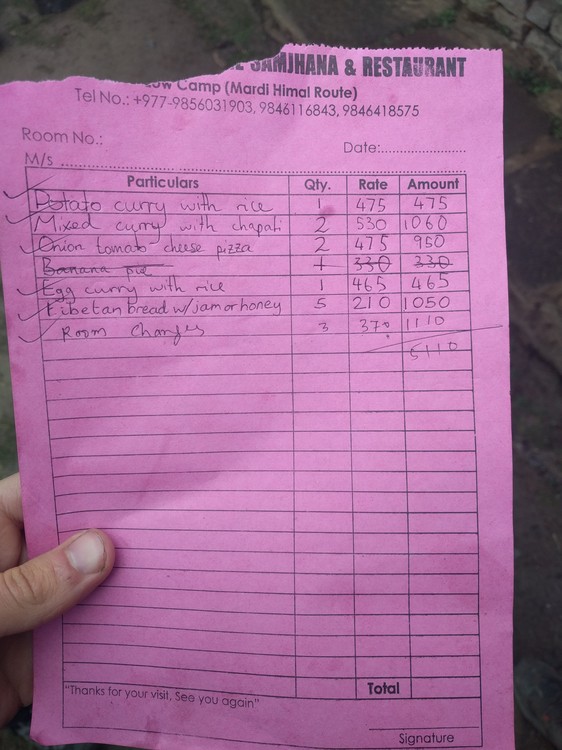 SAMJHANA & RESTAURANT
Camp (Mardi Himal Route)
Tel No.: +977-9856031903, 9846116843, 9846418575
Room No.:
Date:..................
M/s ..................................................
Particulars Qty. Rate Amount
Potato curry with rice 1 475 475
Mixed curry with chapati 2 530 1060
Onion tomato cheese pizza 2 475 950
Banana pie 1 330 330
Egg curry with rice 1 465 465
Tibetan bread w/jam or honey 5 210 1050
Room Charges 3 370 1110
5110
Total
"Thanks for your visit, See you again"
Signature